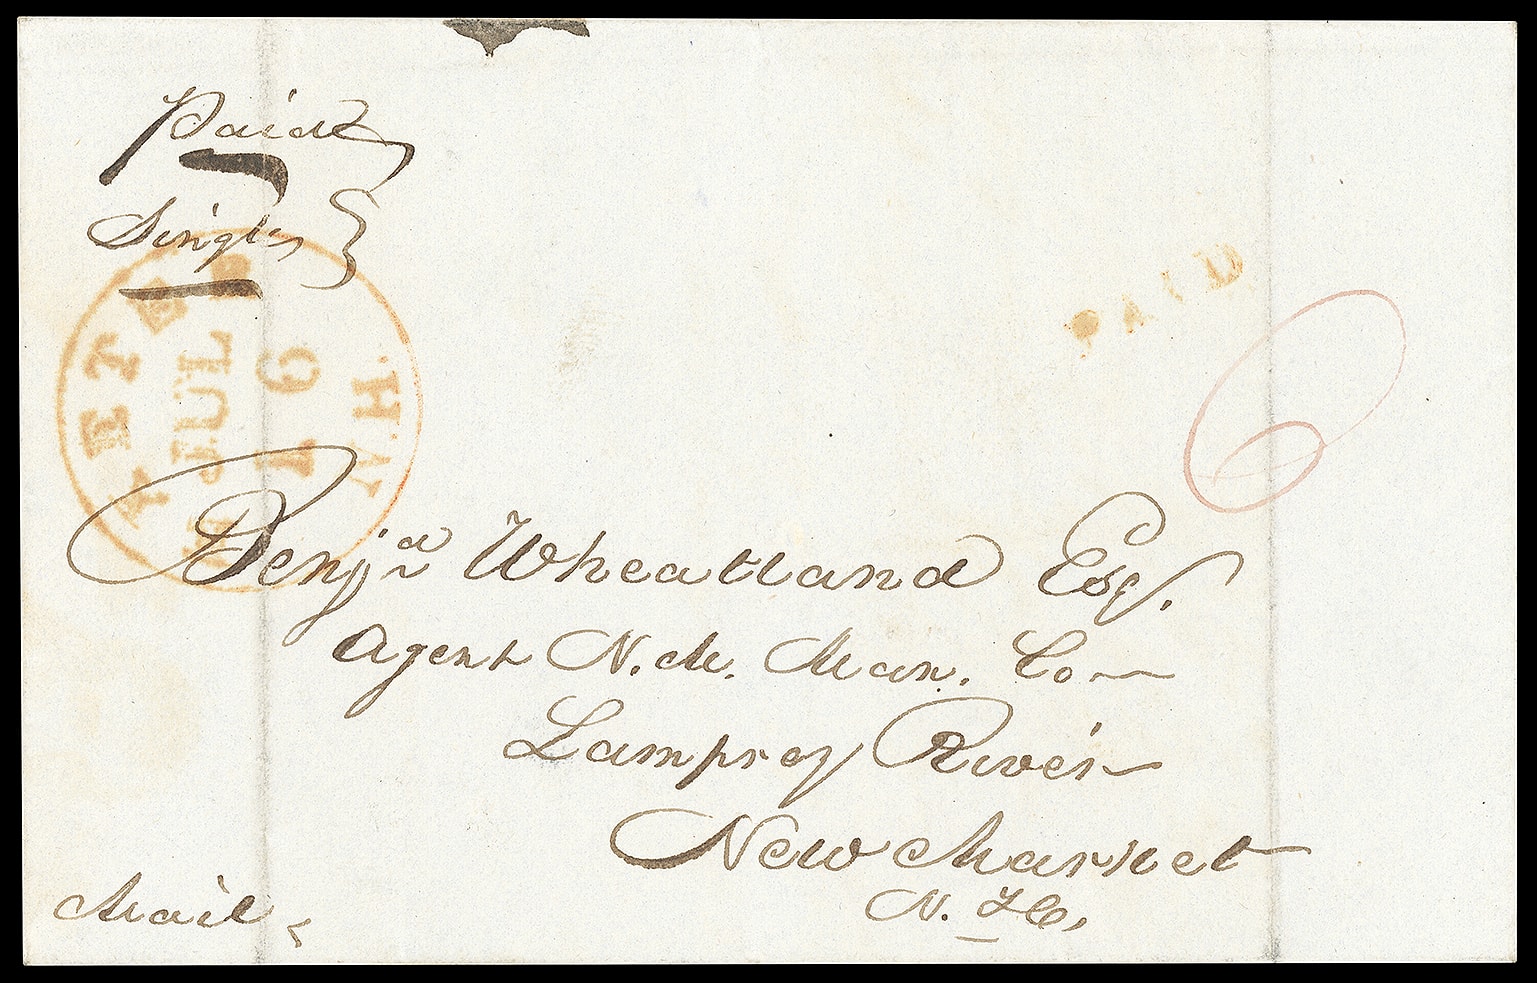 Paid
Single
EXETER N.H.
JUL
16
PAID
6
Benjᵃ Wheatland Esq.
Agent N. M. Man. Co
Lamprey River
New Market
N. H.
Mail